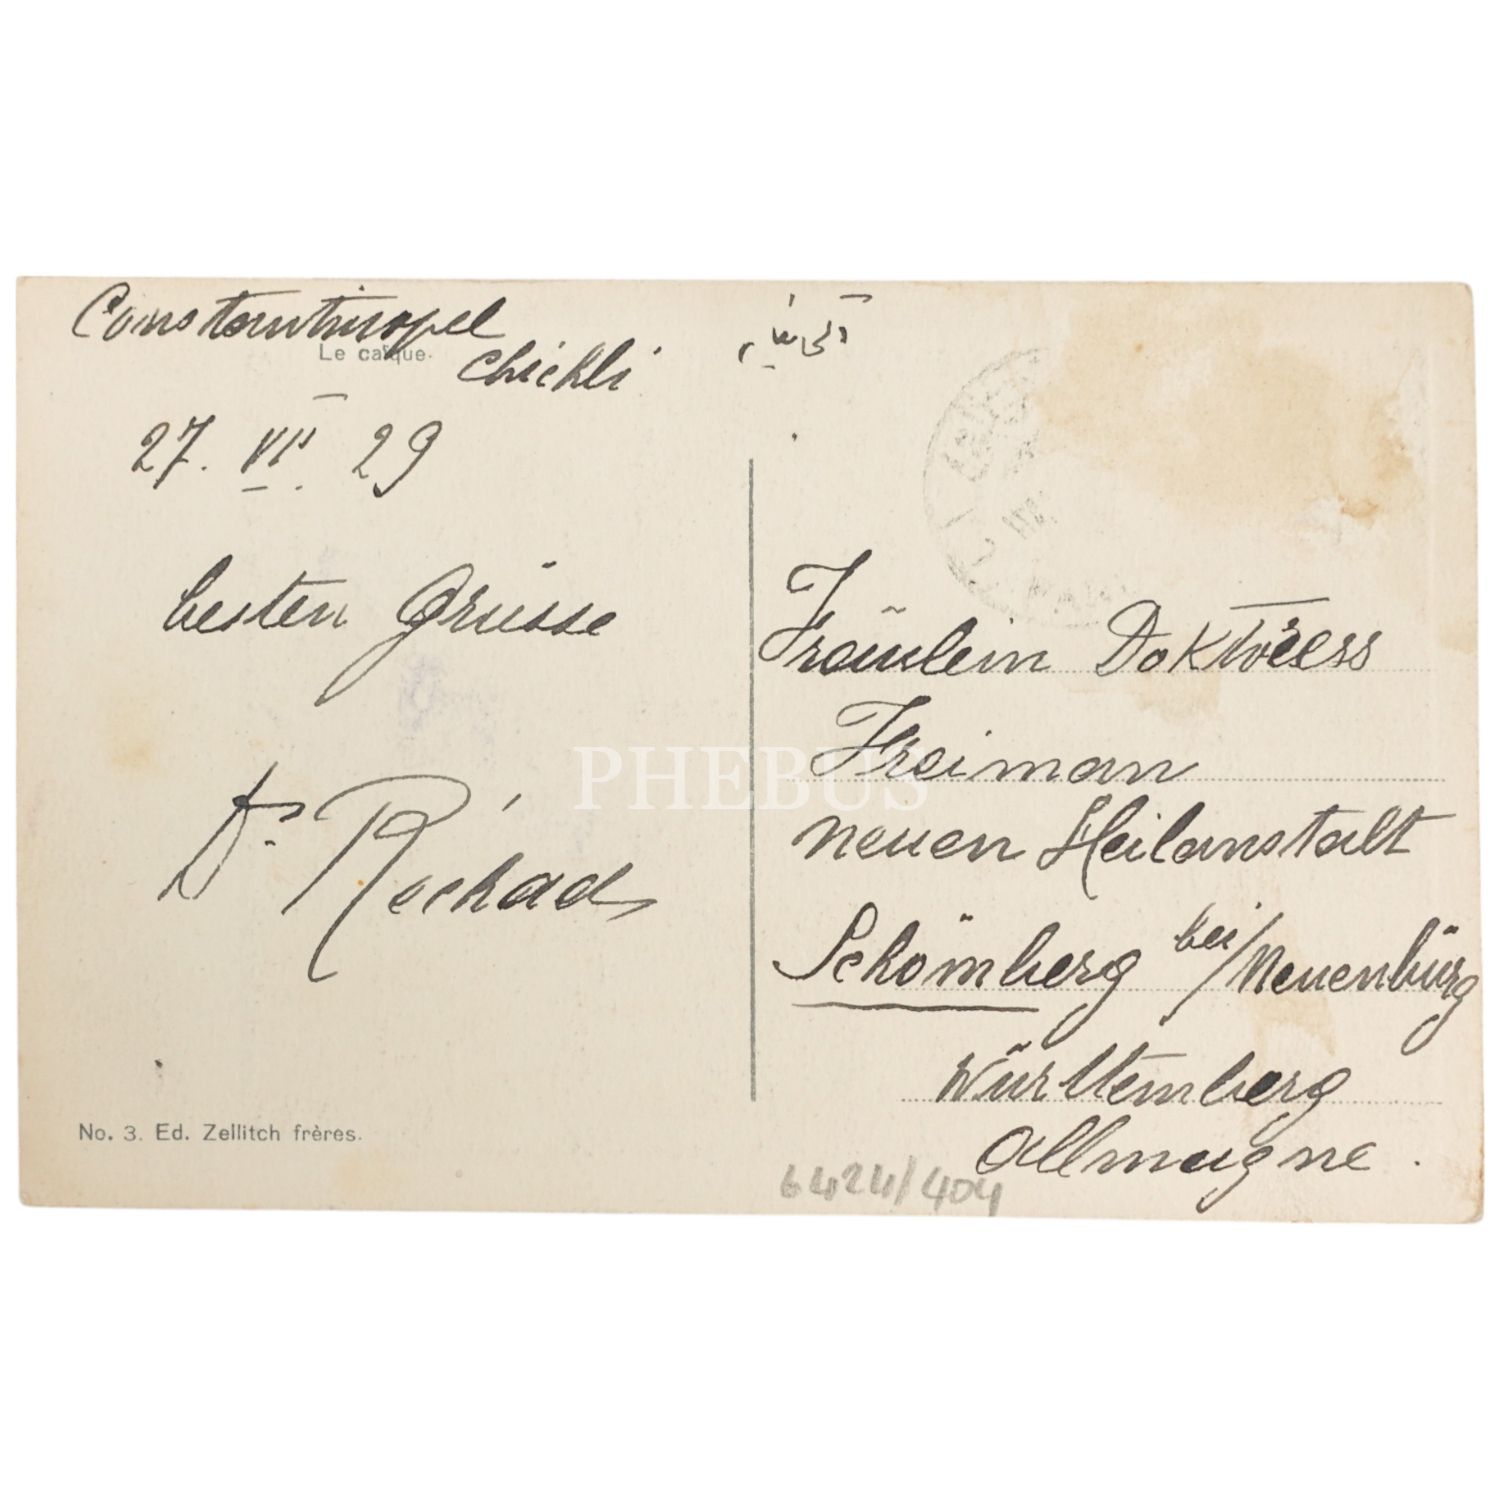 Constantinopel
Le caïque.
Chichli
27. VII. 29
besten Grüsse
Dr. Réchad
No. 3. Ed. Zellitch frères.
Fräulein Doktoress
Freiman
neuen Heilanstalt
Schömberg bei/Neuenbürg
Württemberg
Allmagne.
6424/404
PHEBUS